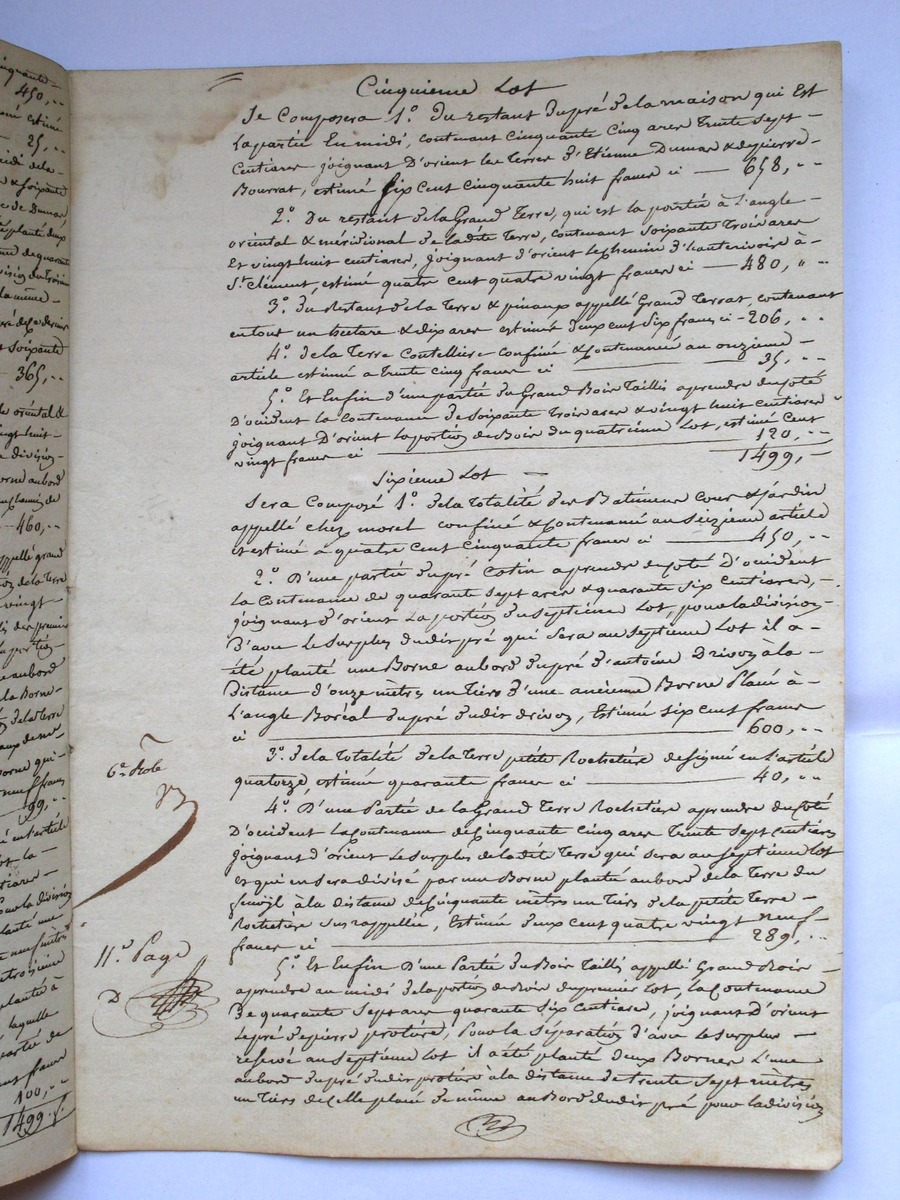 Cinquieme Lot
Se Composera 1.º du restant du pré de la maison qui Est
La partie En midi, contenant cinquante cinq ares trente Sept
Centiares joignant D'orient les terres d'Etienne Dumas & de pierre
Bourrat, estimé Six Cent cinquante huit francs ci — 658, „ „
2.º Du restant de la Grand Terre, qui est la partie à L'angle
oriental & méridional de la dite Terre, contenant Soixante Trois ares
Et vingt huit centiares, joignant d'orient le chemin d'hauterivoire à
S.t Clément, estimé quatre cent quatre vingt francs ci — 480, „ „
3.º du Restant de la Terre & pinaux appellé Grand Terrat, contenant
en tout un hectare & dix ares estimé deux cent Six francs ci - 206, „ „
4.º de la Terre Coutellier confiné & Contenancé au onzieme
article estimé a Trente cinq francs ci — 35, „ „
5.º Et Enfin d'une partie du Grand Bois Taillis aprendre du coté
D'occident la Contenance de Soixante Trois ares & vingt huit centiares
joignant D'orient la portion de Bois du quatrieme Lot, estimé Cent
vingt francs ci — 120, „ „
1499, „
Sixieme Lot —
Sera Composé 1.º de la Totalité des Batimens Cour & Jardin
appellé chez morel confiné & Contenancé au Seizieme article
et estimé à quatre cent cinquante francs ci — 450, „ „
2.º D'une partie du pré Cotin aprendre du coté D'occident
La Contenance de quarante Sept ares & quarante Six Centiares,
joignant d'orient La portion du Septieme Lot, pour la division
D'avec Le Surplus dudit pré qui Sera au Septieme Lot il a
été planté une Borne au bord du pré d'antoine Drivon à la
Distance d'onze mètres un Tiers d'une ancienne Borne Placé à
L'angle Boréal du pré dudit drivon, Estimé Six cent francs
ci — 600, „ „
3.º de la Totalité de la Terre petite Rochetière designé en L'article
quatorze, estimée quarante francs ci — 40, „ „
4.º D'une Partie de la Grand Terre Rochetière aprendre du Coté
D'occident La Contenance de Cinquante Cinq ares Trente Sept Centiares
joignant d'orient Le Surplus de la dite Terre qui sera au Septieme Lot
et qui en sera divisé par une Borne planté au bord de la Terre du
à la distance de Cinquante mètres un Tiers de la petite Terre
Rochetière Sus rappellée, Estimée deux cent quatre vingt neuf
francs ci — 289, „ „
5.º Et Enfin D'une Partie du Bois Taillis appellé Grand Bois
aprendre au midi de la portion de Bois du premier Lot, La Contenance
De quarante Sept ares quarante Six Centiares, joignant d'orient
Le pré de pierre protière, Pour la Séparation d'avec Le Surplus
reservé au Septieme Lot il a été planté deux Bornes L'une
au bord du pré dudit protière à la distance de trente Sept mètres
un Tiers de Celle placé de même au Bord dudit pré pour la division
6.e Role
11.e Page
450, „ „
25, „ „
365, „ „
460, „ „
99, „ „
100, „ „
1499